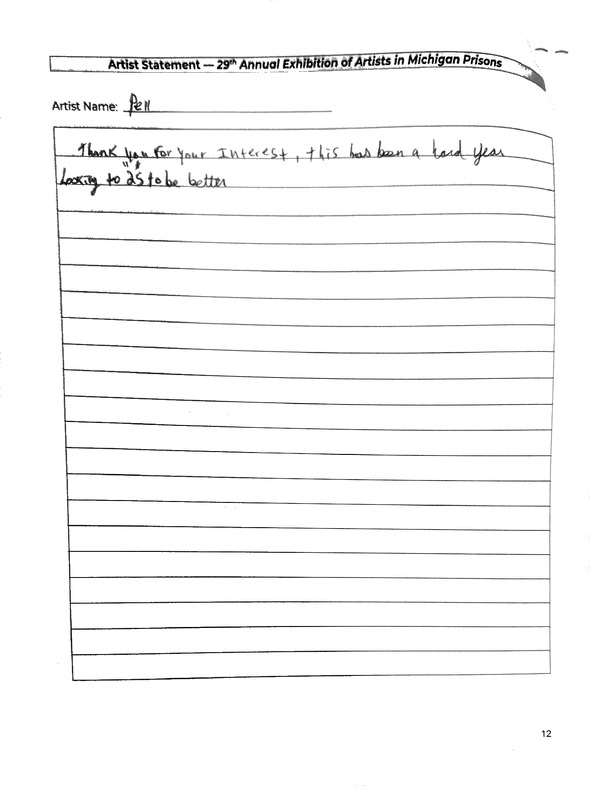 Artist Statement — 29th Annual Exhibition of Artists in Michigan Prisons
Artist Name: Pell
Thank you for your Interest, this has been a hard year
Looking to "25 to be better
12